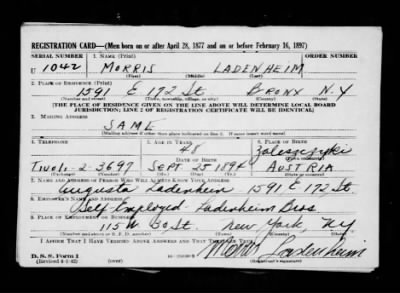 REGISTRATION CARD—(Men born on or after April 28, 1877 and on or before February 16, 1897)
SERIAL NUMBER 1. NAME (Print) ORDER NUMBER
U 1042 MORRIS LADENHEIM
(First) (Middle) (Last)
2. PLACE OF RESIDENCE (Print)
1591 E 172 St. BRONX N.Y
(Number and street) (Town, township, village, or city) (County) (State)
[THE PLACE OF RESIDENCE GIVEN ON THE LINE ABOVE WILL DETERMINE LOCAL BOARD
JURISDICTION; LINE 2 OF REGISTRATION CERTIFICATE WILL BE IDENTICAL]
3. MAILING ADDRESS
SAME
(Mailing address if other than place indicated on line 2. If same insert word same)
4. TELEPHONE 5. AGE IN YEARS 6. PLACE OF BIRTH
48 Zaleszczyki
DATE OF BIRTH (Town or county)
Tivoli-2-3697 Sept 25 1894 AUSTRIA
(Exchange) (Number) (Mo.) (Day) (Yr.) (State or country)
7. NAME AND ADDRESS OF PERSON WHO WILL ALWAYS KNOW YOUR ADDRESS
Augusta Ladenheim 1591 E 172 St.
8. EMPLOYER'S NAME AND ADDRESS
Self Employed - Ladenheim Bros.
9. PLACE OF EMPLOYMENT OR BUSINESS
115 W 30 St. New York, NY
(Number and street or R. F. D. number) (Town) (County) (State)
I AFFIRM THAT I HAVE VERIFIED ABOVE ANSWERS AND THAT THEY ARE TRUE.
D. S. S. Form 1
(Revised 4-1-42) (over) Morris Ladenheim